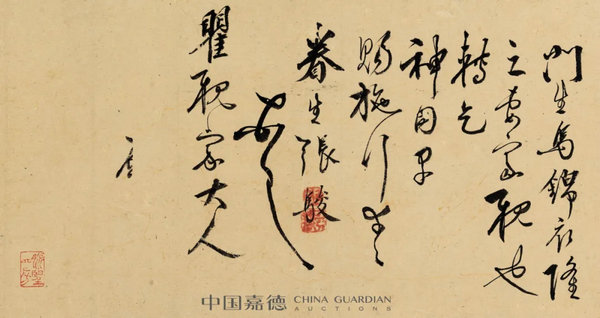 門生馬錦衣隆
之安家親也
轉乞
神因早
賜施行
眷生張駿
瞿親家大人
中国嘉德 CHINA GUARDIAN
AUCTIONS